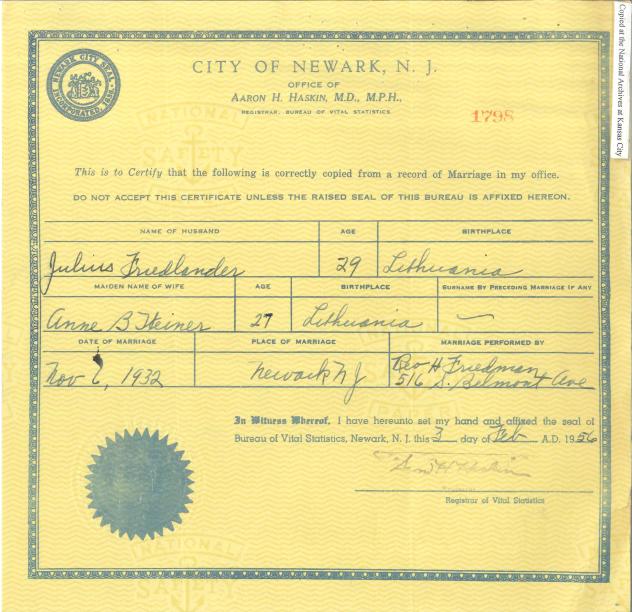 Copied at the National Archives at Kansas City
NEWARK CITY SEAL
INCORPORATED, 1836
CITY OF NEWARK, N. J.
OFFICE OF
AARON H. HASKIN, M.D., M.P.H.,
REGISTRAR, BUREAU OF VITAL STATISTICS
1798
NATIONAL
SAFETY
This is to Certify that the following is correctly copied from a record of Marriage in my office.
DO NOT ACCEPT THIS CERTIFICATE UNLESS THE RAISED SEAL OF THIS BUREAU IS AFFIXED HEREON.
NAME OF HUSBAND AGE BIRTHPLACE
Julius Friedlander 29 Lithuania
MAIDEN NAME OF WIFE AGE BIRTHPLACE SURNAME BY PRECEDING MARRIAGE IF ANY
Anne B Steiner 27 Lithuania —
DATE OF MARRIAGE PLACE OF MARRIAGE MARRIAGE PERFORMED BY
Nov , 1932 Newark NJ Rev H. Friedman
516 S. Belmont Ave
In Witness Whereof, I have hereunto set my hand and affixed the seal of
Bureau of Vital Statistics, Newark, N. J. this 3 day of Feb A.D. 1956
Registrar of Vital Statistics
NATIONAL
SAFETY